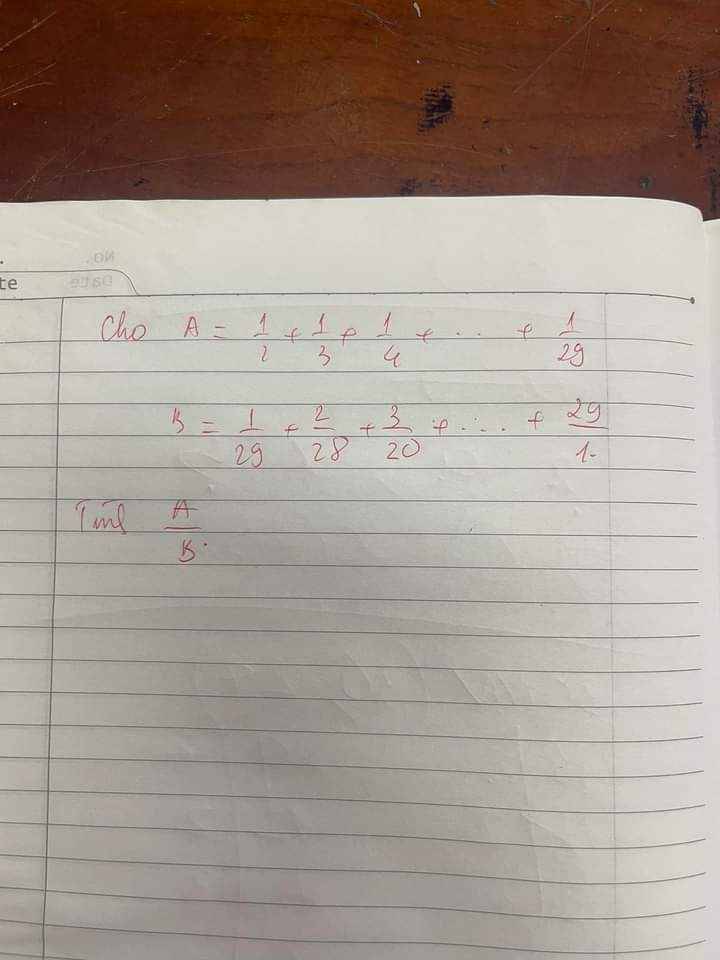 No.
Date
te
Cho A = 1/2 + 1/3 + 1/4 + ... + 1/29
B = 1/29 + 2/28 + 3/20 + .... + 29/1.
Tính A/B.